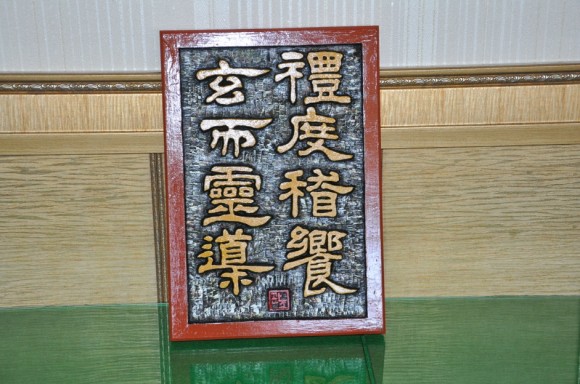 禮度稽饗
玄而靈導